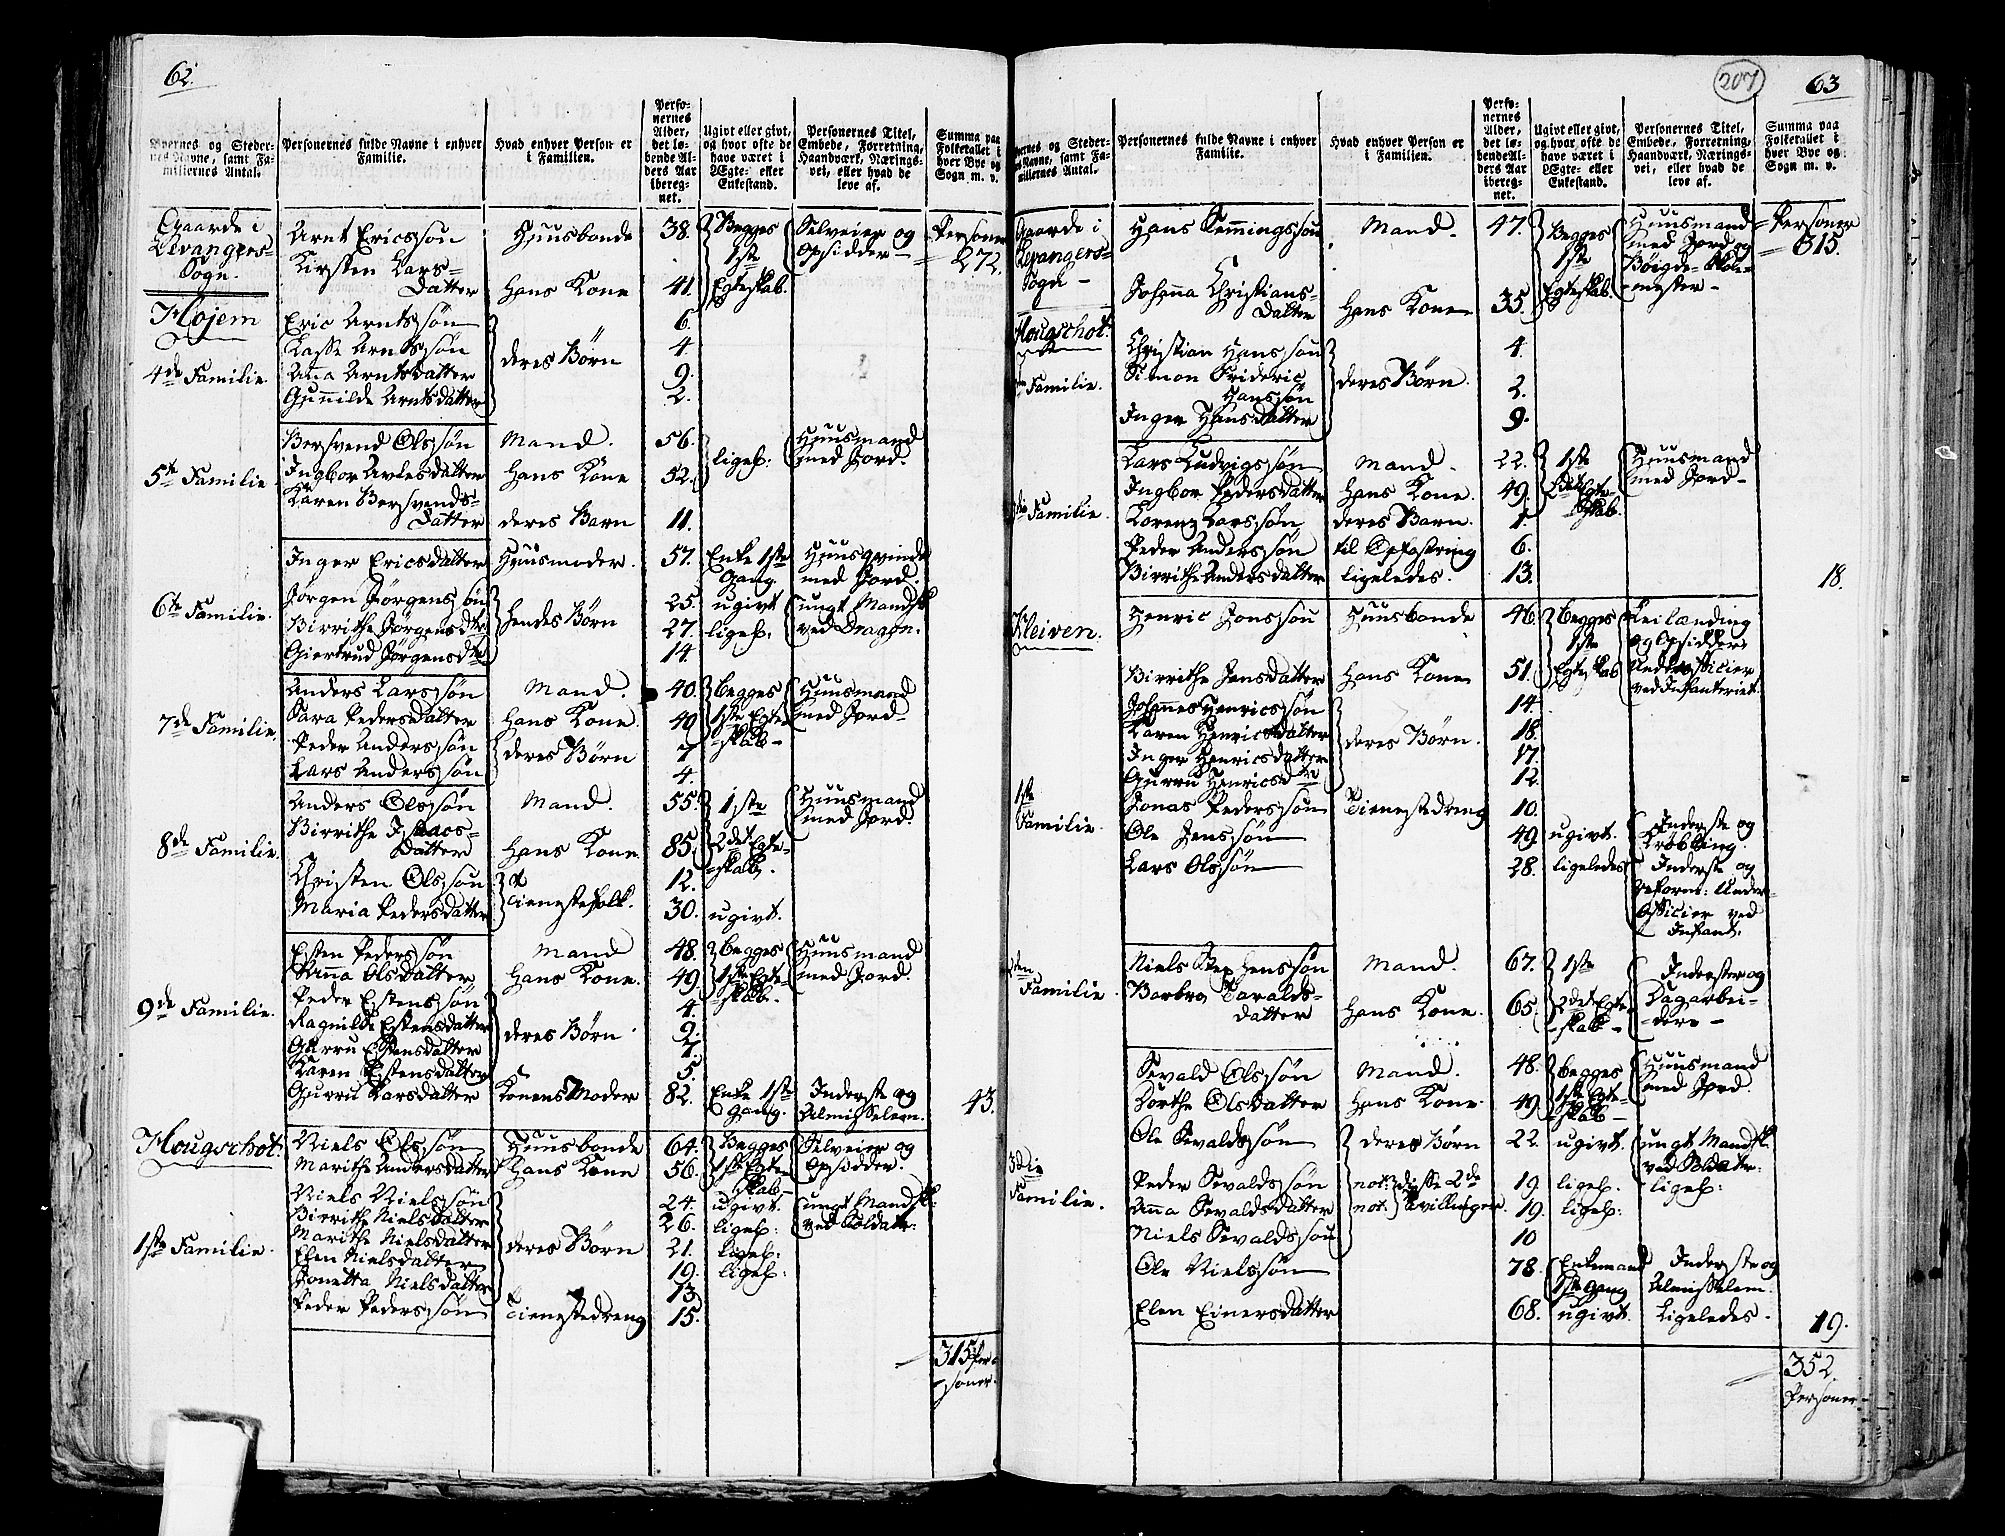 62.
Byernes og Steder-
nes Navne, samt Fa-
miliernes Antal.
Personernes fulde Navne i enhver
Familie.
Hvad enhver Person er
i Familien.
Perso-
nernes
Alder,
det lø-
bende Al-
ders Aar
ibereg-
net.
Ugivt eller givt,
og hvor ofte de
have været i
Ægte- eller
Enkestand.
Personernes Titel,
Embede, Forretning,
Haandværk, Nærings-
vei, eller hvad de
leve af.
Summa paa
Folketallet i
hver Bye og
Sogn m. v.
Gaarde i
Levangers-
Sogn.
Højem
4de Familie
Arnt Ericssøn Huusbonde 38. Begges 1ste Egteskab. Selveier og Opsidder Personer 272.
Kirsten Lars-
Datter hans Kone 41.
Eric Arntssøn 6.
Lasse Arntssøn deres Børn 4
Anna Arntsdatter 9.
Gunnilde Arntsdatter 2.
5te Familie
Bersvend Olssøn Mand. 56. liges: Huusmand med Jord.
Ingbor Arlesdatter hans Kone 52.
Karen Bersvends-
Datter deres Barn 11.
6te Familie
Inger Ericsdatter Huusmoder. 57. Enke 1ste Gang Huusqvinde med Jord.
Jørgen Jørgenssøn hendes Børn 25. ugivt ungt Mandsk. ved Dragon.
Birrithe Jørgensdtr 27. liges:
Giertrud Jørgensdtr 14.
7de Familie
Anders Larssøn Mand. 40. begges 1ste Egte-skab Huusmand med Jord
Sara Pedersdatter hans Kone 40
Peder Anderssøn deres Børn 7
Lars Anderssøn 4.
8de Familie
Anders Olssøn Mand. 55. 1ste Huusmand med Jord.
Birrithe Isaacs-
Datter hans Kone 85. 2det Egte-skab.
Christen Olssøn Tienestefolk. 12.
Maria Pedersdatter 30. ugivt.
9de Familie
Esten Pederssøn Mand 48. begges 1ste Egte-skab. Huusmand med Jord.
Anna Olsdatter hans Kone. 49
Peder Estenssøn 4.
Ragnilde Estensdatter deres Børn 9.
Gurru Estensdatter 7.
Karen Estensdatter 5.
Gurru Larsdatter Konens Moder 82. Enke 1ste Gang. Inderste og Almisselem. 43.
Hougschot:
1ste Familie
Niels Olssøn Huusbonde 64. Begges 1ste Egte-skab Selveier og Opsidder.
Marithe Andersdatter hans Kone 56.
Niels Nielssøn 24. ugivt. ungt Mandsk: ved Soldat:
Birrithe Nielsdatter 26. ligef:
Marithe Nielsdatter deres Børn 21. ligef:
Elen Nielsdatter 19. ligef:
Jonetta Nielsdatter 13.
Peder Pederssøn Tienestedreng 15.
315 Per-
soner.
207
63
rnes og Steder-
s Navne, samt Fa-
miliernes Antal.
Personernes fulde Navne i enhver
Familie.
Hvad enhver Person er
i Familien.
Perso-
nernes
Alder,
det lø-
bende Al-
ders Aar
ibereg-
net.
Ugivt eller givt,
og hvor ofte de
have været i
Ægte- eller
Enkestand.
Personernes Titel,
Embede, Forretning,
Haandværk, Nærings-
vei, eller hvad de
leve af.
Summa paa
Folketallet i
hver Bye og
Sogn m. v.
Gaarde i
Levangers-
Sogn
Hougschot:
Familie.
Hans Hemmingssøn Mand. 47. Begges 1ste Egteskab. Huusmand med Jord og Bøigde-Skole-mester Personer 315.
Johanna Christians-
Datter hans Kone 35.
Christian Hanssøn 4.
Simon Frideric
Hanssøn deres Børn. 2.
Inger Hansdatter 9.
Familie.
Lars Ludvigssøn Mand. 22. 1ste Huusmand med Jord
Ingbor Pedersdatter hans Kone. 49. 2det Egte-skab.
Lorenz Larssøn deres Barn. 1.
Peder Anderssøn til Opfostring 6.
Birrithe Andersdatter ligeledes. 13. 18.
Kleiven.
1ste
Familie.
Henric Jonssøn Huusbonde 46. begges 1ste Egteskab Leilænding og Opsidder Underofficier ved Infanteriet
Birrithe Jensdatter hans Kone 51.
Johannes Henricssøn 14.
Karen Henricsdatter deres Børn. 18.
Inger Henricsdatter 17.
Gurru Henricsdtr 12.
Jonas Pederssøn Tienestedreng 10.
Ole Jenssøn 49. ugivt. Inderste og Krøbling.
Lars Olssøn 28. ligeledes Inderste og reform: Under-Officier ved Infant.
Familie.
Niels Stephenssøn Mand. 67. 1ste Inderster og Dagarbei-dere
Barbro Taralds-
datter hans Kone. 65. 2det Egte-skab
3die
Familie.
Sevald Olssøn Mand. 48. begges 1ste Egte-skab Huusmand med Jord.
Dorthe Olsdatter hans Kone. 49.
Ole Sevaldssøn deres Børn 22. ugivt ungt Mandsk. ved Soldater:
Peder Sevaldssøn not: disse 2de 19 ligef. ligef:
Anna Sevaldsdatter not: Tvillinger 19. ligef:
Niels Sevaldssøn 10
Ole Nielssøn 78. Enkemand 1ste Gang Inderste og Almisselem.
Elen Einersdatter 68. ugivt. Ligeledes. 19.
352
Personer